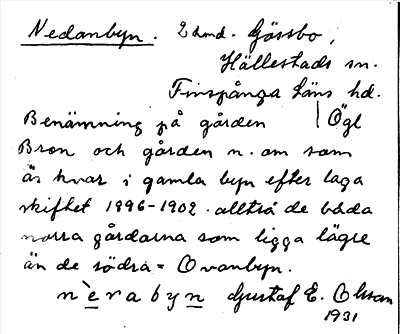 Nedanbyn. 2 hmd. Gössbo,
Hällestads sn.
Finspånga läns hd.
Benämning på gården | Ögl
Bron och gården n. om som
är kvar i gamla byn efter laga
skiftet 1896-1902. alltså de båda
norra gårdarna som ligga lägre
än de södra = Ovanbyn.
nèrabyn Gustaf E. Olsson
1931